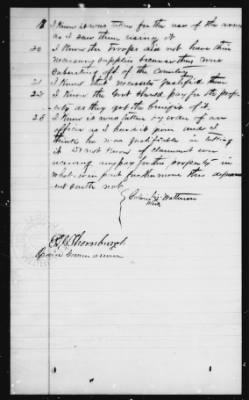 I know it was taken for the use of the army
as I saw them using it
20 I know the troops did not have their
necessary supplies because they were
out of the Country
21 I know necessity justified them
22 I know the Govt should pay for the prop
erty as they got the benefit of it.
23 I know it was taken by order of an
officer as I heard it given and I
think he was justifiable in taking
it I do not know of claimant ever
receiving any pay for this property in
what ever part furthermore this depon
ent saith not
his
mark
Thornburgh
Special Commissioner